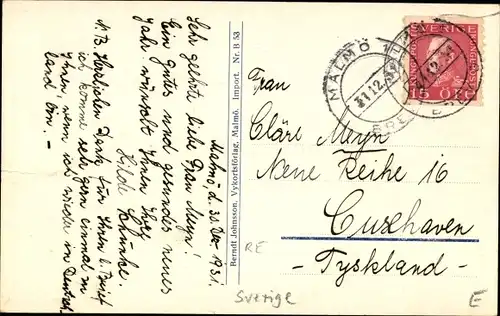 Malmö, d. 30. Dez. 1931.
Sehr geehrte liebe Frau Meyn!
Ein gutes und gesundes neues
Jahr wünscht Ihnen Ihre
Hilde
N.B. Herzlichen Dank für Ihren l. Brief
ich komme sehr gern einmal zu
Ihnen, wenn ich wieder in Deutsch
land bin. –
Berndt Johnsson, Vykortsförlag, Malmö. Import. Nr. B 53
MALMÖ 1
31.12.31
SVERIGE
15 ÖRE
Frau
Cläre Meyn
Neue Reihe 16
Cuxhaven
– Tyskland –
RE
Sverige
E